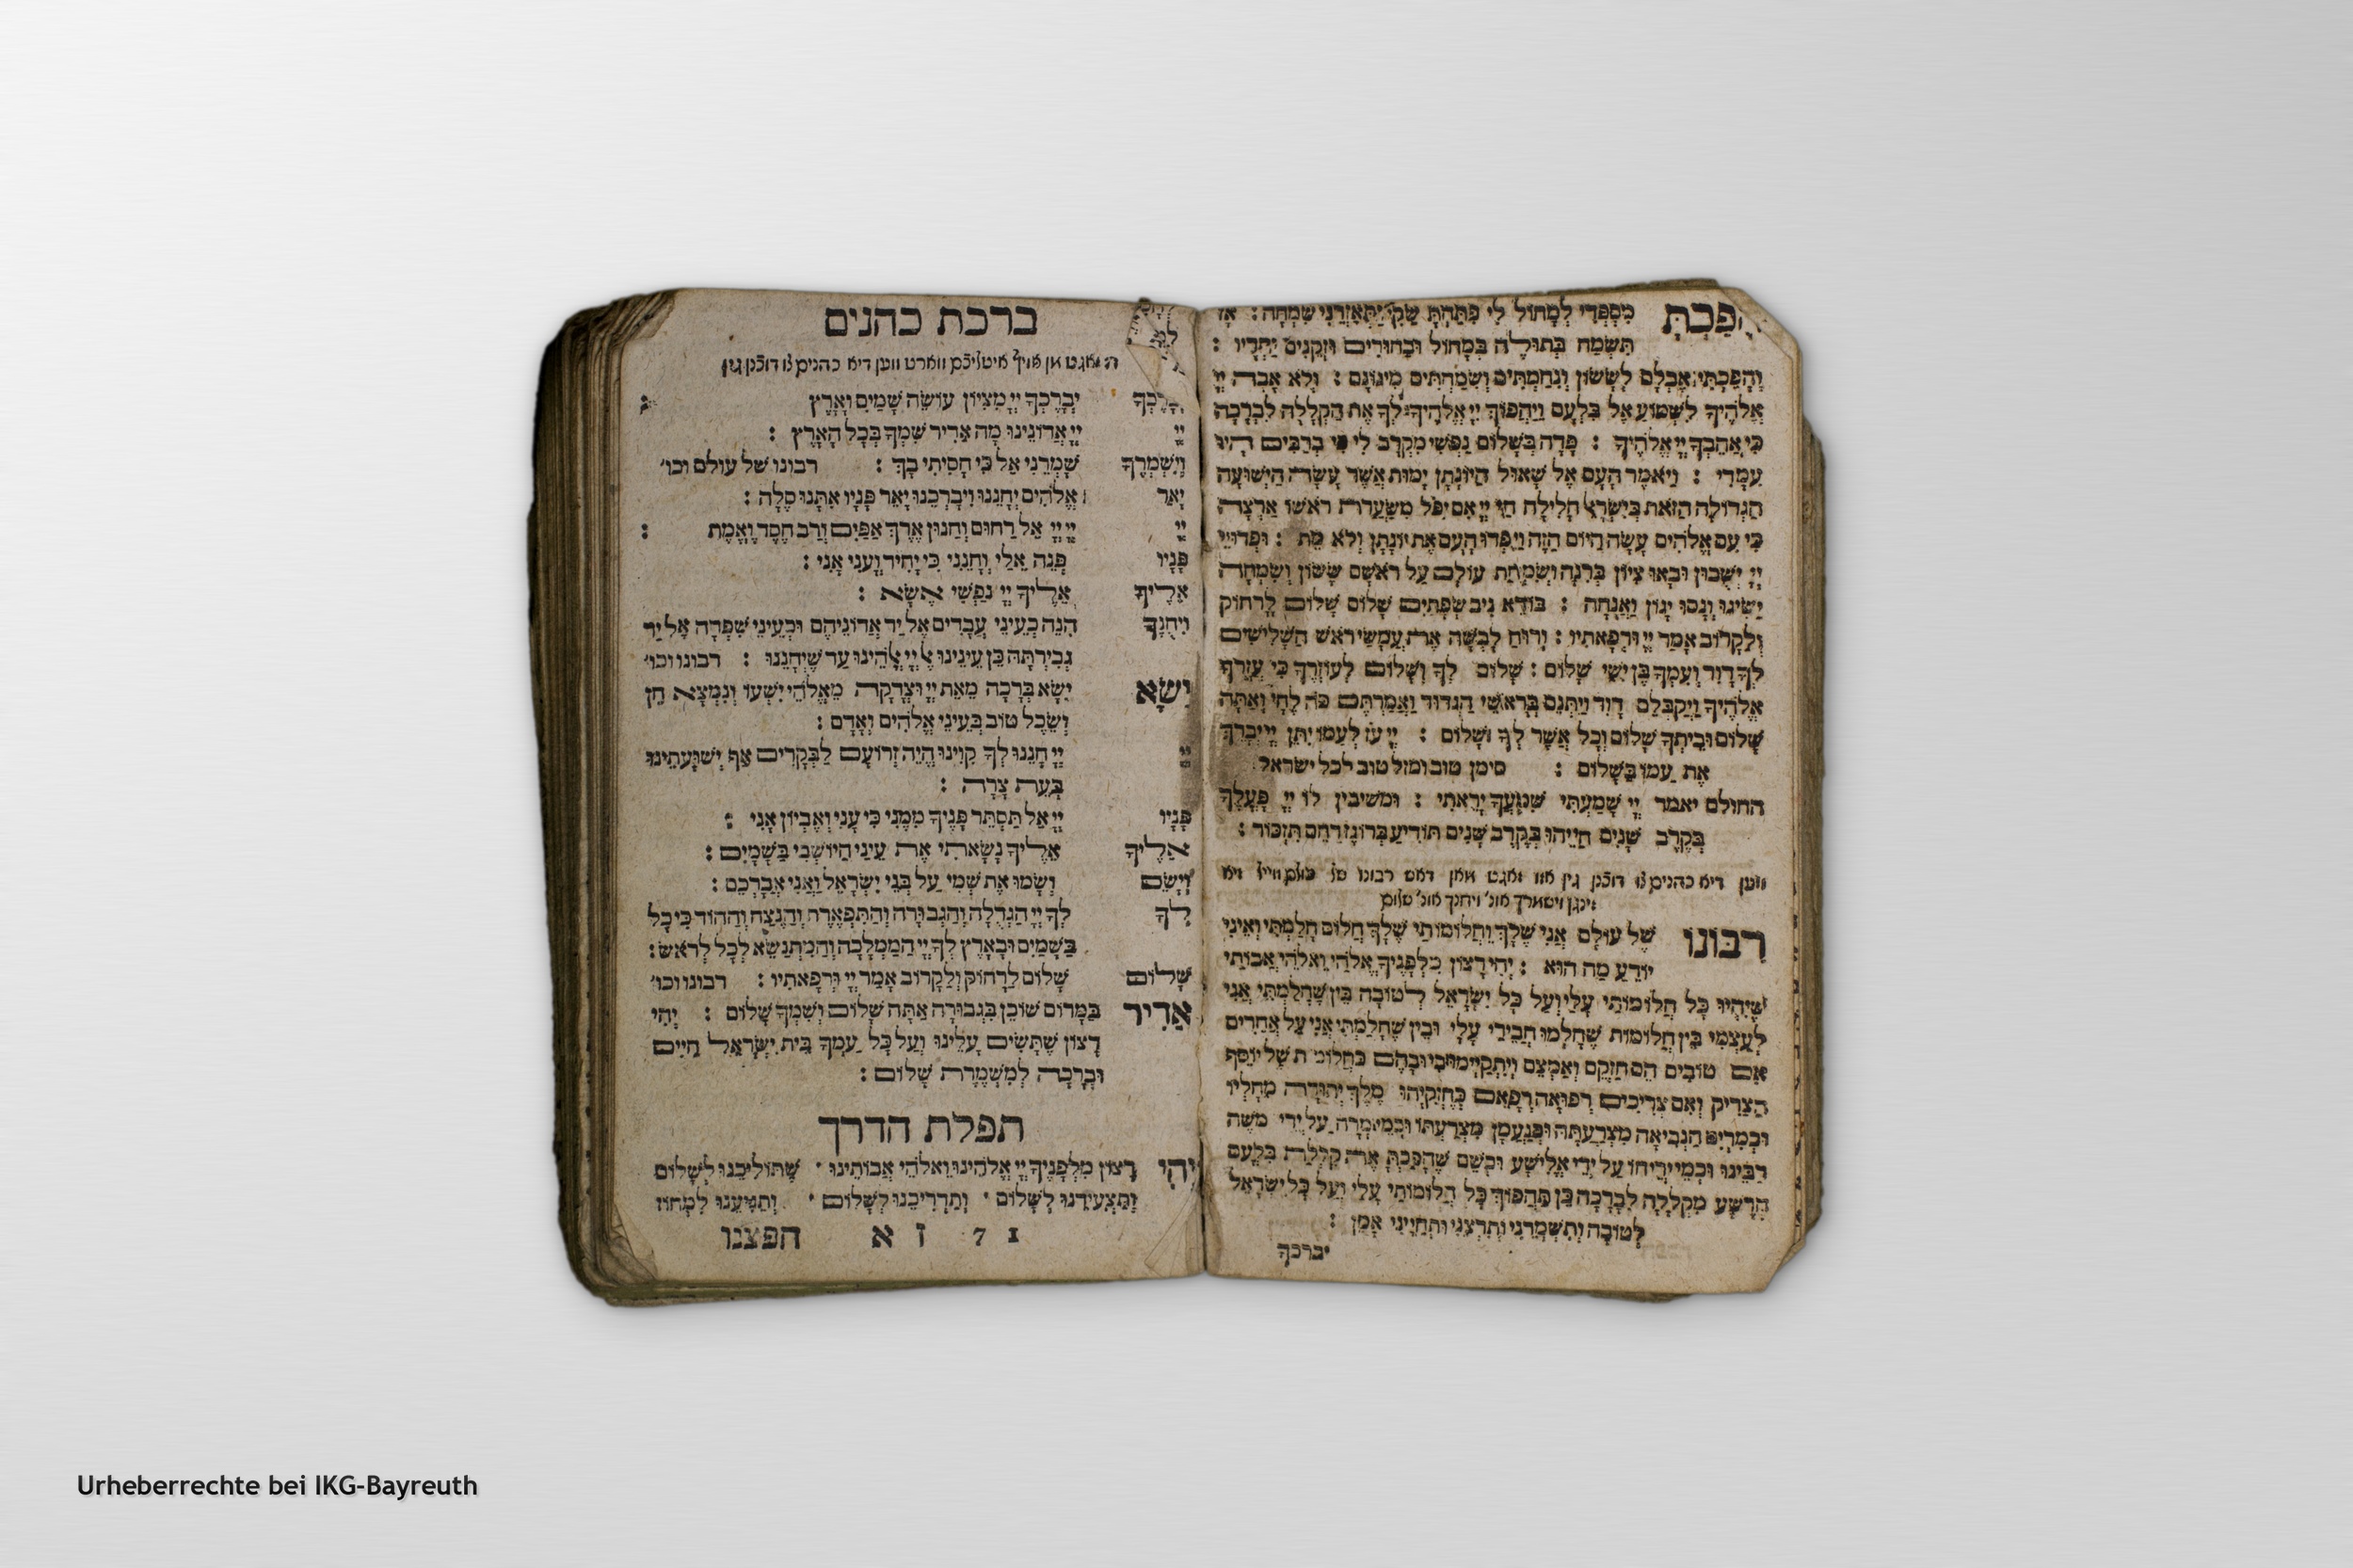 הפכת מספדי למחול לי פתחת שקי ותאזרני שמחה: אז
תשמח בתולה במחול ובחורים וזקנים יחדיו:
והפכתי אבלם לששון ונחמתים ושמחתים מיגונם: ולא אבה יי
אלהיך לשמוע אל בלעם ויהפוך יי אלהיך לך את הקללה לברכה
כי אהבך יי אלהיך: פדה בשלום נפשי מקרב לי כי ברבים היו
עמדי: ויאמר העם אל שאול היונתן ימות אשר עשה הישועה
הגדולה הזאת בישראל חלילה חי יי אם יפל משערת ראשו ארצה
כי עם אלהים עשה היום הזה ויפדו העם את יונתן ולא מת: ופדויי
יי ישובון ובאו ציון ברנה ושמחת עולם על ראשם ששון ושמחה
ישיגו ונסו יגון ואנחה: בורא ניב שפתים שלום שלום לרחוק
ולקרוב אמר יי ורפאתיו: ורוח לבשה את עמשי ראש השלישים
לך דוד ועמך בן ישי שלום: שלום לך ושלום לעוזרך כי עזרך
אלהיך ויקבלם דוד ויתנם בראשי הגדוד ואמרתם כה לחי ואתה
שלום וביתך שלום וכל אשר לך שלום: יי עז לעמו יתן יי יברך
את עמו בשלום: סימן טוב ומזל טוב לכל ישראל
החולם יאמר יי שמעתי שמעך יראתי: ומשיבין לו יי פעלך
בקרב שנים חייהו בקרב שנים תודיע ברוגז רחם תזכור:
ווען דיא כהנים צו דוכנן גין אזו זאגט מאן דאס רבונו של עולם ווייל דיא
זינגן וישמרך אונ' ויחנך אונ' שלום
רבונו של עולם אני שלך וחלומותי שלך חלום חלמתי ואיני
יודע מה הוא: יהי רצון מלפניך אלהי ואלהי אבותי
שיהיו כל חלומותי עלי ועל כל ישראל לטובה בין שחלמתי אני
לעצמי בין חלומות שחלמו חבירי עלי ובין שחלמתי אני על אחרים
אם טובים הם חזקם ואמצם ויתקיימו בי ובהם כחלומות של יוסף
הצדיק ואם צריכים רפואה רפאם כחזקיהו מלך יהודה מחליו
וכמרים הנביאה מצרעתה וכנעמן מצרעתו וכמי מרה על ידי משה
רבינו וכמי יריחו על ידי אלישע וכשם שהפכת את קללת בלעם
הרשע מקללה לברכה כן תהפוך כל חלומותי עלי ועל כל ישראל
לטובה ותשמרני ותרצני ותחייני אמן:
יברכך
ברכת כהנים
זאגט אן איטליכם ווארט ווען דיא כהנים צו דוכנן גין
יברכך יברכך יי מציון עושה שמים וארץ:
יי יי אדונינו מה אדיר שמך בכל הארץ:
וישמרך שמרני אל כי חסיתי בך: רבונו של עולם וכו'
יאר אלהים יחננו ויברכנו יאר פניו אתנו סלה:
יי יי יי אל רחום וחנון ארך אפים ורב חסד ואמת:
פניו פנה אלי וחנני כי יחיד ועני אני:
אליך אליך יי נפשי אשא:
ויחנך הנה כעיני עבדים אל יד אדוניהם וכעיני שפחה אל יד
גבירתה כן עינינו אל יי אלהינו עד שיחננו: רבונו וכו'
ישא ישא ברכה מאת יי וצדקה מאלהי ישעו ונמצא חן
ושכל טוב בעיני אלהים ואדם:
יי יי חננו לך קוינו היה זרועם לבקרים אף ישועתינו
בעת צרה:
פניו יי אל תסתר פניך ממני כי עני ואביון אני:
אליך אליך נשאתי את עיני היושבי בשמים:
וישם ושמו את שמי על בני ישראל ואני אברכם:
לך לך יי הגדולה והגבורה והתפארת והנצח וההוד כי כל
בשמים ובארץ לך יי הממלכה והמתנשא לכל לראש:
שלום שלום לרחוק ולקרוב אמר יי ורפאתיו: רבונו וכו'
אדיר במרום שוכן בגבורה אתה שלום ושמך שלום: יהי
רצון שתשים עלינו ועל כל עמך בית ישראל חיים
וברכה למשמרת שלום:
תפלת הדרך
יהי רצון מלפניך יי אלהינו ואלהי אבותינו שתוליכנו לשלום
ותצעידנו לשלום ותדריכנו לשלום ותגיענו למחוז
1 7 ז א הפצנו
Urheberrechte bei IKG-Bayreuth